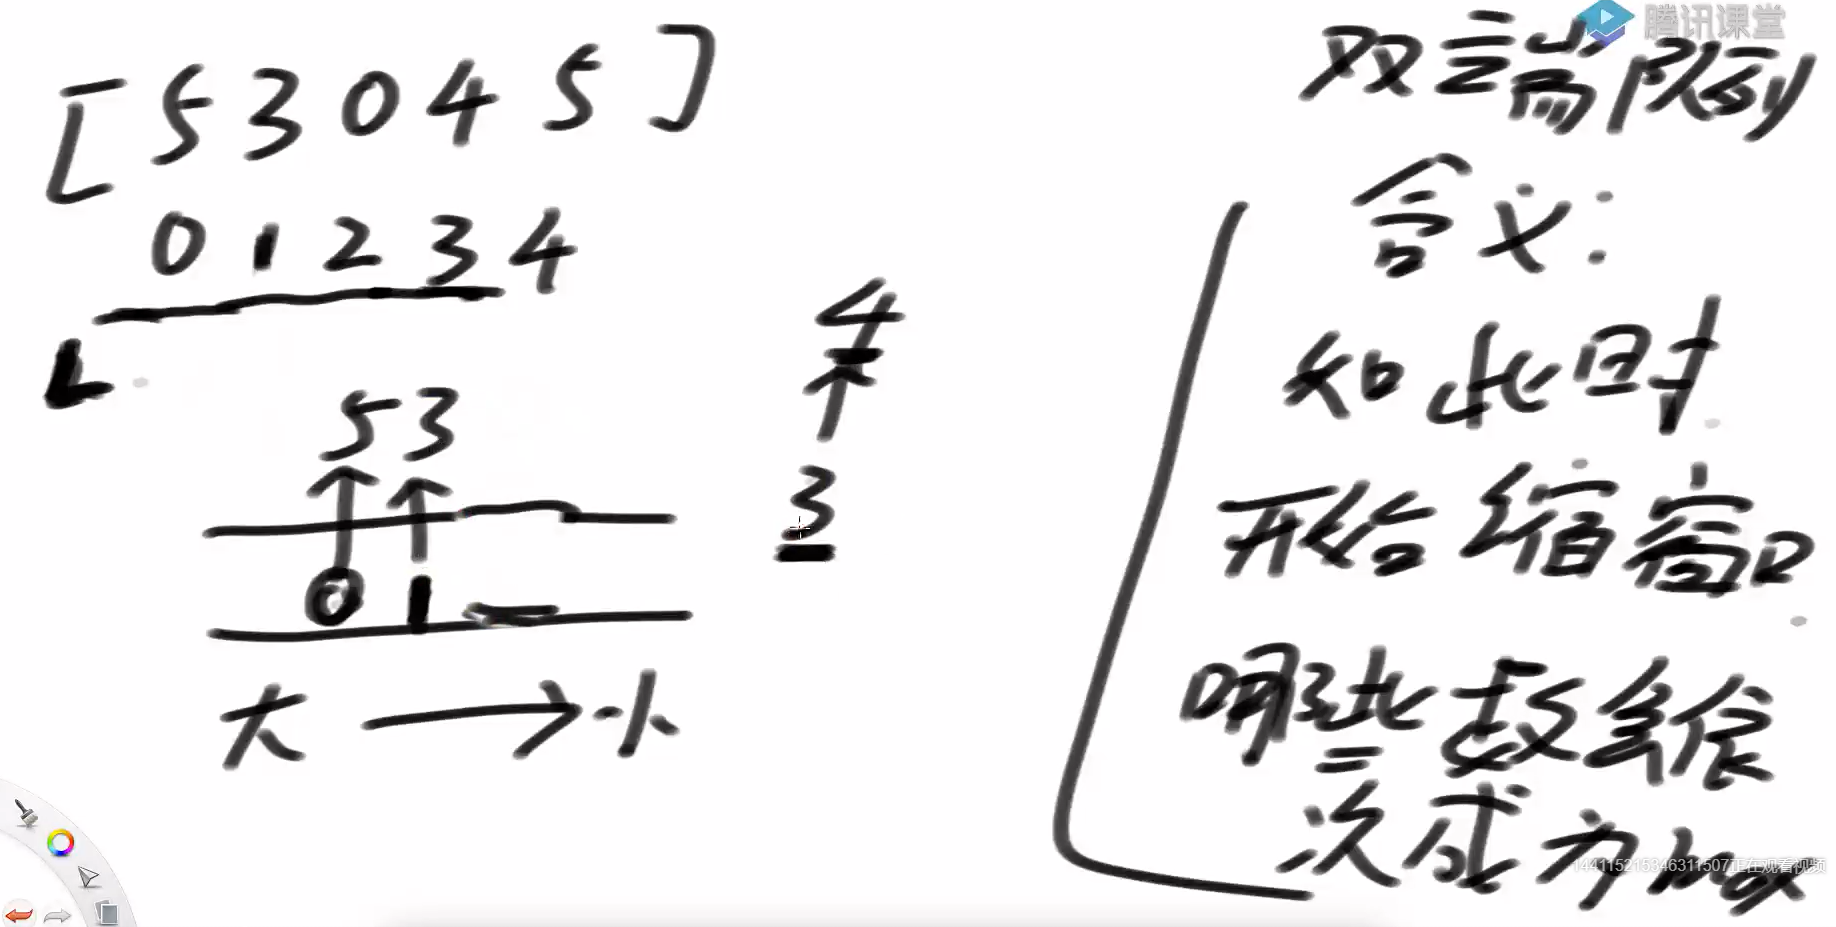 [ 5 3 0 4 5 ]
0 1 2 3 4
L
5 3
0 1
大 → 小
4
↑
3
腾讯课堂
双端队列
含义:
如此时
开始缩窗口
哪些数会依
次成为max
144115215346311507正在观看视频